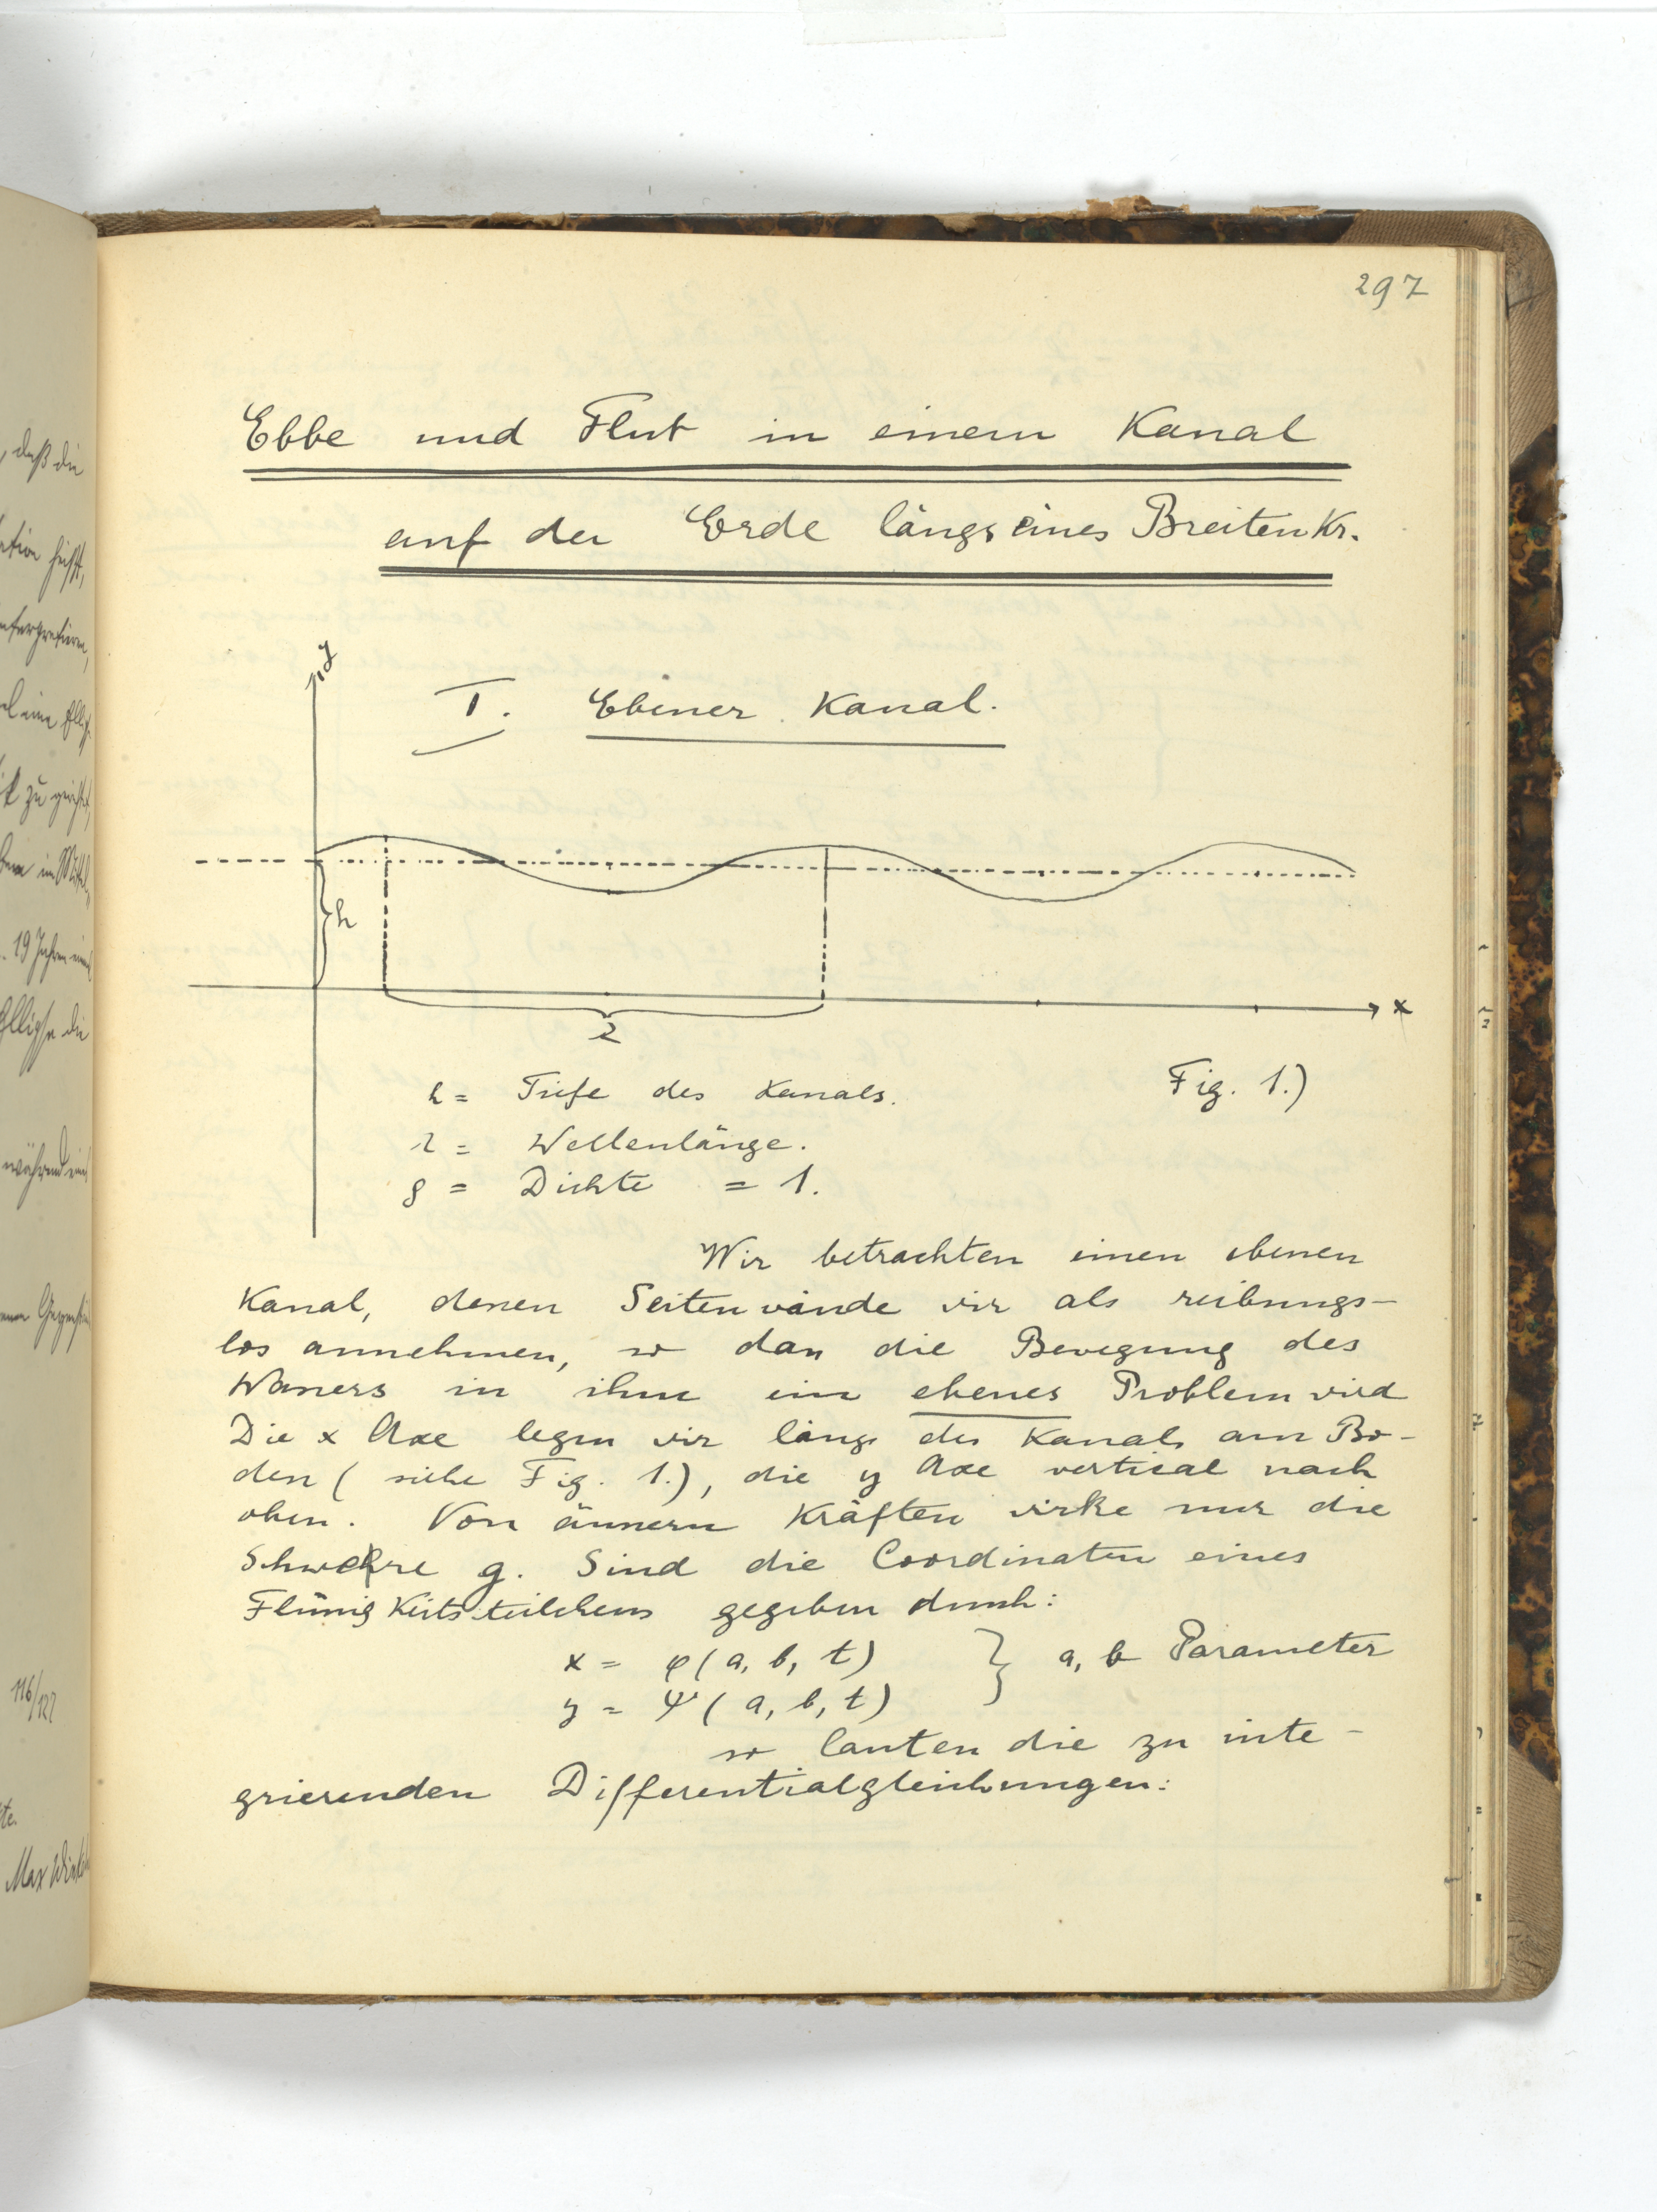 , daß die
19 Jahren
Ellipse die
während
116/127
Max
297
Ebbe und Flut in einem Kanal
auf der Erde längs eines Breitenkr.
y
I. Ebener Kanal.
h
λ
x
Fig. 1.)
h = Tiefe des Kanals.
λ = Wellenlänge.
ρ = Dichte = 1.
Wir betrachten einen ebenen
Kanal, denen Seitenwände wir als reibungs-
los annehmen, so dass die Bewegung des
Wassers in ihm ein ebenes Problem wird
Die x Axe legen wir längs des Kanals am Bo-
den ( siehe Fig. 1.), die y Axe vertical nach
oben. Von äussern Kräften wirke nur die
Schwere g. Sind die Coordinaten eines
Flüssigkeitsteilchens gegeben durch:
x = φ ( a, b, t ) } a, b Parameter
y = ψ ( a, b, t )
so lauten die zu inte-
grierenden Differentialgleichungen: